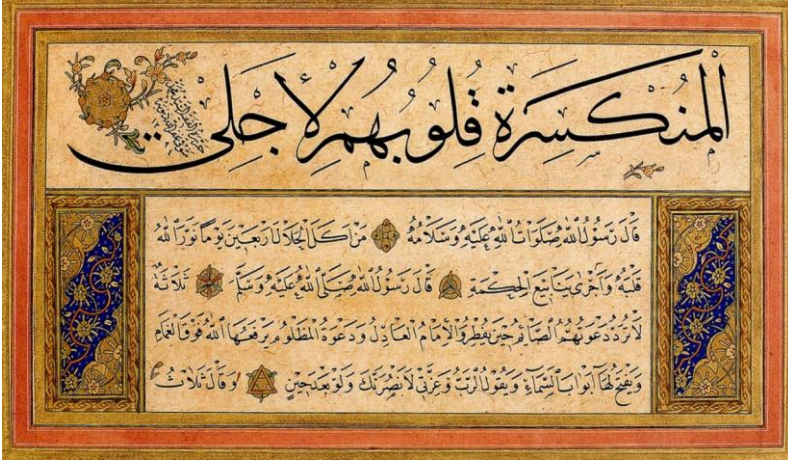 المُنْكَسِرَةِ قُلُوبُهُمْ لِأَجْلِي
قَالَ رَسُولُ اللهِ صَلَوَاتُ اللهِ عَلَيْهِ وَسَلَامُهُ مَنْ اَكَلَ الْحَلَالَ اَرْبَعِينَ يَوْمًا نَوَّرَ اللهُ
قَلْبَهُ وَاَجْرٰى يَنَابِيعَ الْحِكْمَةِ قَالَ رَسُولُ اللهِ صَلَّى اللهُ عَلَيْهِ وَسَلَّمَ ثَلَاثَةٌ
لَا تُرَدُّ دَعْوَتُهُمُ الصَّائِمُ حِينَ يُفْطِرُ وَالْاِمَامُ الْعَادِلُ وَدَعْوَةُ الْمَظْلُومِ يَرْفَعُهَا اللهُ فَوْقَ الْغَمَامِ
وَيَفْتَحُ لَهَا اَبْوَابَ السَّمَاءِ وَيَقُولُ الرَّبُّ وَعِزَّتِي لَاَنْصُرَنَّكَ وَلَوْ بَعْدَ حِينٍ وَقَالَ ثَلَاثُ